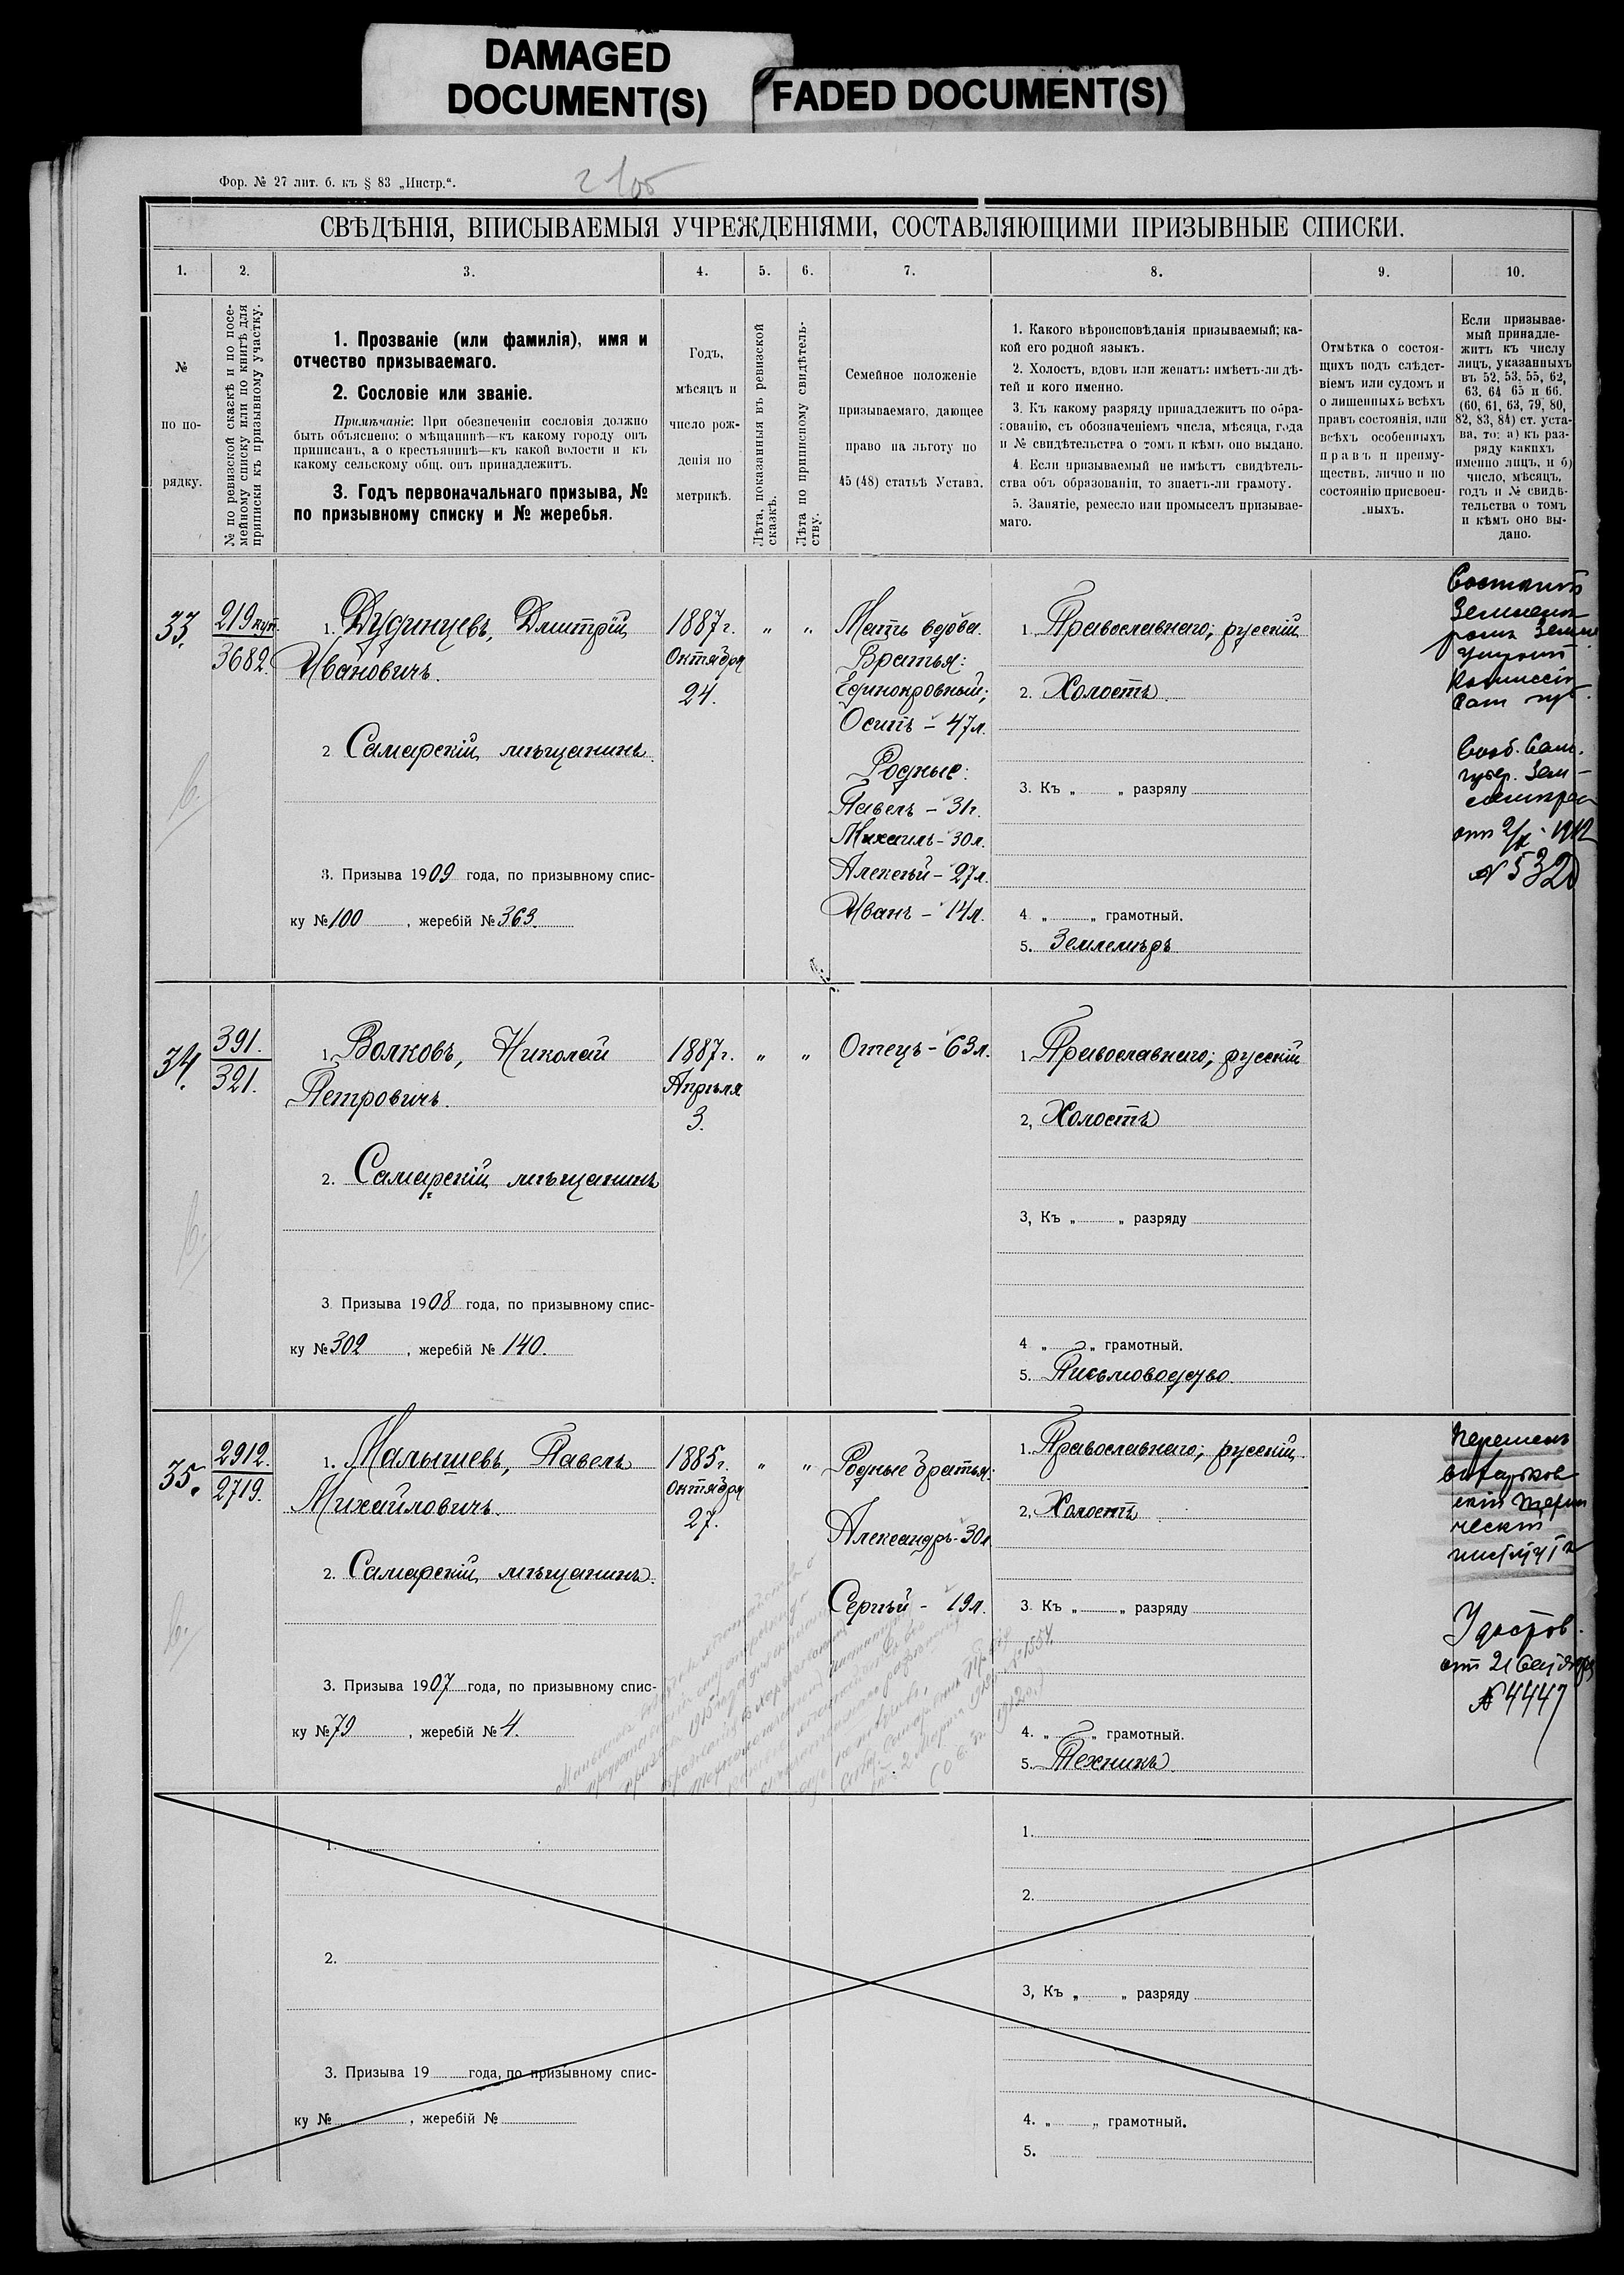 DAMAGED
DOCUMENT(S)
FADED DOCUMENT(S)
Фор. № 27 лит. б. къ § 83 „Инстр.“.
СВѢДѢНІЯ, ВПИСЫВАЕМЫЯ УЧРЕЖДЕНІЯМИ, СОСТАВЛЯЮЩИМИ ПРИЗЫВНЫЕ СПИСКИ.
1. 2. 3. 4. 5. 6. 7. 8. 9. 10.
№
по по-
рядку.
№ по ревизской сказкѣ и по посе-
мейному списку или по книгѣ для
приписки къ призывному участку.
1. Прозваніе (или фамилія), имя и
отчество призываемаго.
2. Сословіе или званіе.
Примѣчаніе: При обезпеченіи сословія должно
быть объяснено: о мѣщанинѣ—къ какому городу онъ
приписанъ, а о крестьянинѣ—къ какой волости и къ
какому сельскому общ. онъ принадлежитъ.
3. Годъ первоначальнаго призыва, №
по призывному списку и № жеребья.
Годъ,
мѣсяцъ и
число рож-
денія по
метрикѣ.
Лѣта, показанныя въ ревизской
сказкѣ.
Лѣта по приписному свидѣтель-
ству.
Семейное положеніе
призываемаго, дающее
право на льготу по
45 (48) статьѣ Устава.
1. Какого вѣроисповѣданія призываемый; ка-
кой его родной языкъ.
2. Холостъ, вдовъ или женатъ: имѣетъ-ли дѣ-
тей и кого именно.
3. Къ какому разряду принадлежитъ по обра-
зованію, съ обозначеніемъ числа, мѣсяца, года
и № свидѣтельства о томъ и кѣмъ оно выдано.
4. Если призываемый не имѣетъ свидѣтель-
ства объ образованіи, то знаетъ-ли грамоту.
5. Занятіе, ремесло или промыселъ призывае-
маго.
Отмѣтка о состоя-
щихъ подъ слѣдст-
віемъ или судомъ и
о лишенныхъ всѣхъ
правъ состоянія, или
всѣхъ особенныхъ
правъ и преиму-
ществъ, лично и по
состоянію присвоен-
ныхъ.
Если призывае-
мый принадле-
житъ къ числу
лицъ, указанныхъ
въ 52, 53, 55, 62,
63, 64 65 и 66.
(60, 61, 63, 79, 80,
82, 83, 84) ст. уста-
ва, то: а) къ раз-
ряду какихъ
именно лицъ, и б)
число, мѣсяцъ,
годъ и № свидѣ-
тельства о томъ
и кѣмъ оно вы-
дано.
33.
219 куп.
3682.
1. Дудинцевъ, Дмитрій
Ивановичъ.
2 Самарскій мѣщанинъ.
3. Призыва 1909 года, по призывному спис-
ку № 100, жеребій № 363.
1887 г.
Октября
24.
„ „
Мать вдова.
Братья:
Единокровный;
Осипъ – 47 л.
Родные:
Павелъ – 31 г.
Михаилъ – 30 л.
Алексѣй – 27 л.
Иванъ – 14 л.
1. Православнаго; русскій
2. Холостъ
3. Къ „ „ разряду
4 „ „ грамотный.
5. Землемѣръ.
отъ 2/X 1912
№ 5320
34.
391.
321.
1. Волковъ, Николай
Петровичъ.
2. Самарскій мѣщанинъ
3 Призыва 1908 года, по призывному спис-
ку № 302, жеребій № 140.
1887 г.
Апрѣля
3.
„ „
Отецъ – 63 л.
1. Православнаго; русскій
2, Холостъ
3, Къ „ „ разряду
4 „ „ грамотный.
5. Письмоводство.
35.
2912.
2719.
1. Малышевъ, Павелъ
Михайловичъ.
2. Самарскій мѣщанинъ.
3. Призыва 1907 года, по призывному спис-
ку № 79, жеребій № 4.
1885 г.
Октября
27.
„ „
Родные братья:
Александръ – 30 л.
Сергѣй – 19 л.
1. Православнаго; русскій.
2, Холостъ
3. Къ „ „ разряду
4. „ „ грамотный.
5. Техникъ.
№ 4447
1.
2.
3. Призыва 19 года, по призывному спис-
ку №, жеребій №
1.
2.
3, Къ „ „ разряду
4. „ „ грамотный.
5.